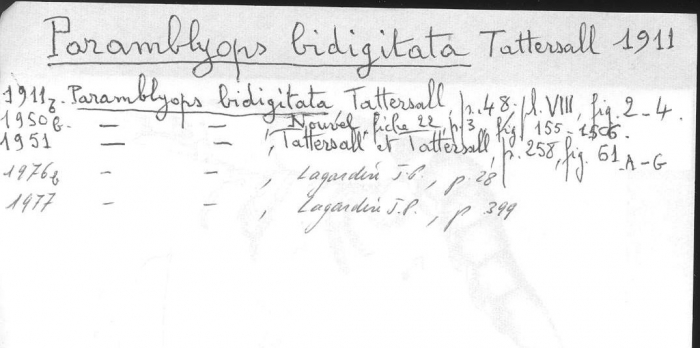 Paramblyops bidigitata Tattersall 1911
1911b. Paramblyops bidigitata Tattersall, p. 48. pl. VIII, fig. 2-4.
1950b. — — , Nouvel, fiche 22, p. 3, fig 155-156.
1951 — — , Tattersall et Tattersall, p. 258, fig. 61 A-G
1976b - - , Lagardère J.P., p. 28
1977 - - , Lagardère J.P., p. 399